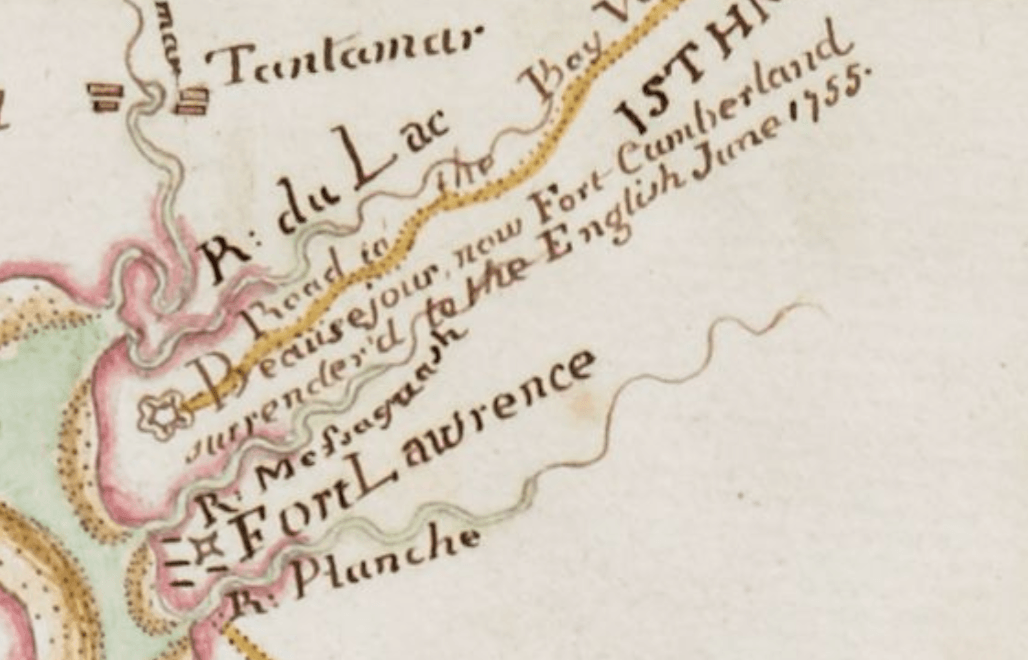 mar
Tantamar
R: du Lac
Road to the Bay
ISTHM
Beausejour, now Fort Cumberland
surrender'd to the English June 1755.
R: Messaguash
Fort Lawrence
R: Planche